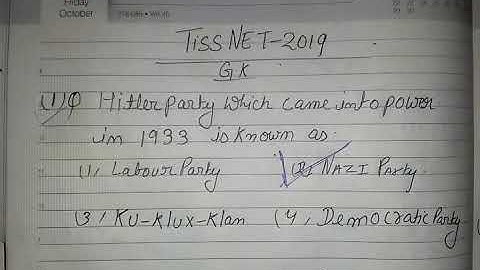 Friday
October
TISSNET-2019
GK
(1) Q Hitlerparty which came intopower
in 1933 is known as:
(1) Labour Party (2) NAZI Party
(3) Ku-Klux-Klan (4) Democratic Party